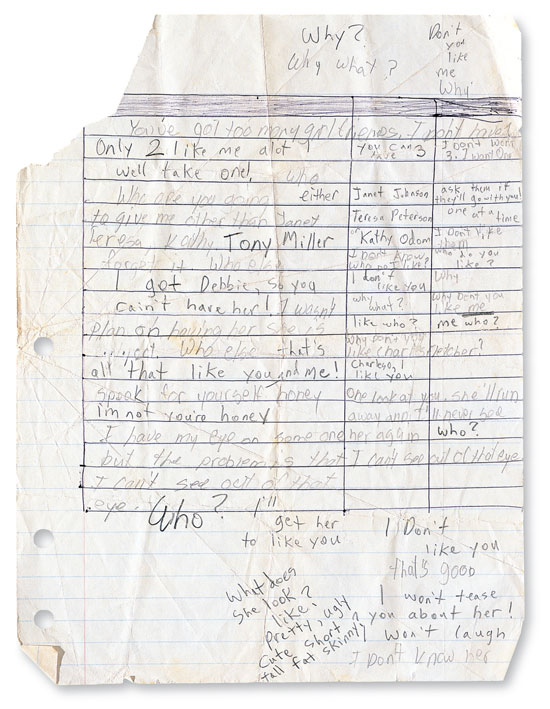 Why?
Why what?
Don't
you
like
me
Why
You've got too many girlfriends. I don't have
Only 2 like me alot!
you can have 3
I Don't want 3. I want One
well take one!, who
Who are you going either
Janet Johnson
ask them if they'll go with you!
to give me other than Janet
Teresa Peterson
one at a time
Teresa Kathy Tony Miller
or Kathy Odom
I Don't like them
forget it Who else
I don't know
who do you like?
I got Debbie, so you
I don't like you
Why
cain't have her! I wasn't
why what?
Why Dont you like me
plan on having her she is
like who?
me who?
Who else that's
Why don't you like Charles Fletcher?
all that like you and me!
Charles, I like you
speak for yourself honey
One look at you, she'll run
im not you're honey
away and I'll never see
I have my eye on some one
her again
who?
but the problem is that I can't see out of that eye
I can't see out of that
eye. Who? I'll
get her
to like you
I Don't
like you
that's good
What does
she look?
like,
Pretty, ugly
Cute Short,
tall fat skinny!
I won't tease
you about her!
I won't laugh
I Don't know her